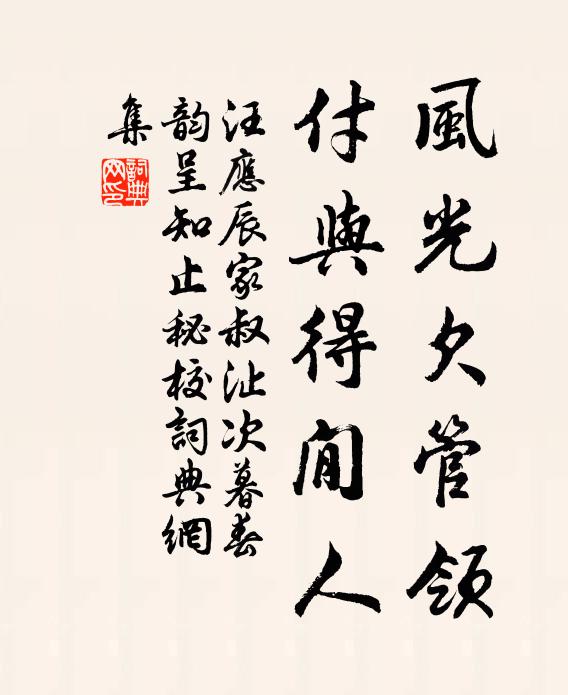 風光欠管領
付與得閒人
汪應辰家叔沚次暮春
韵呈知止秘校詞典網
集
詞典
網印